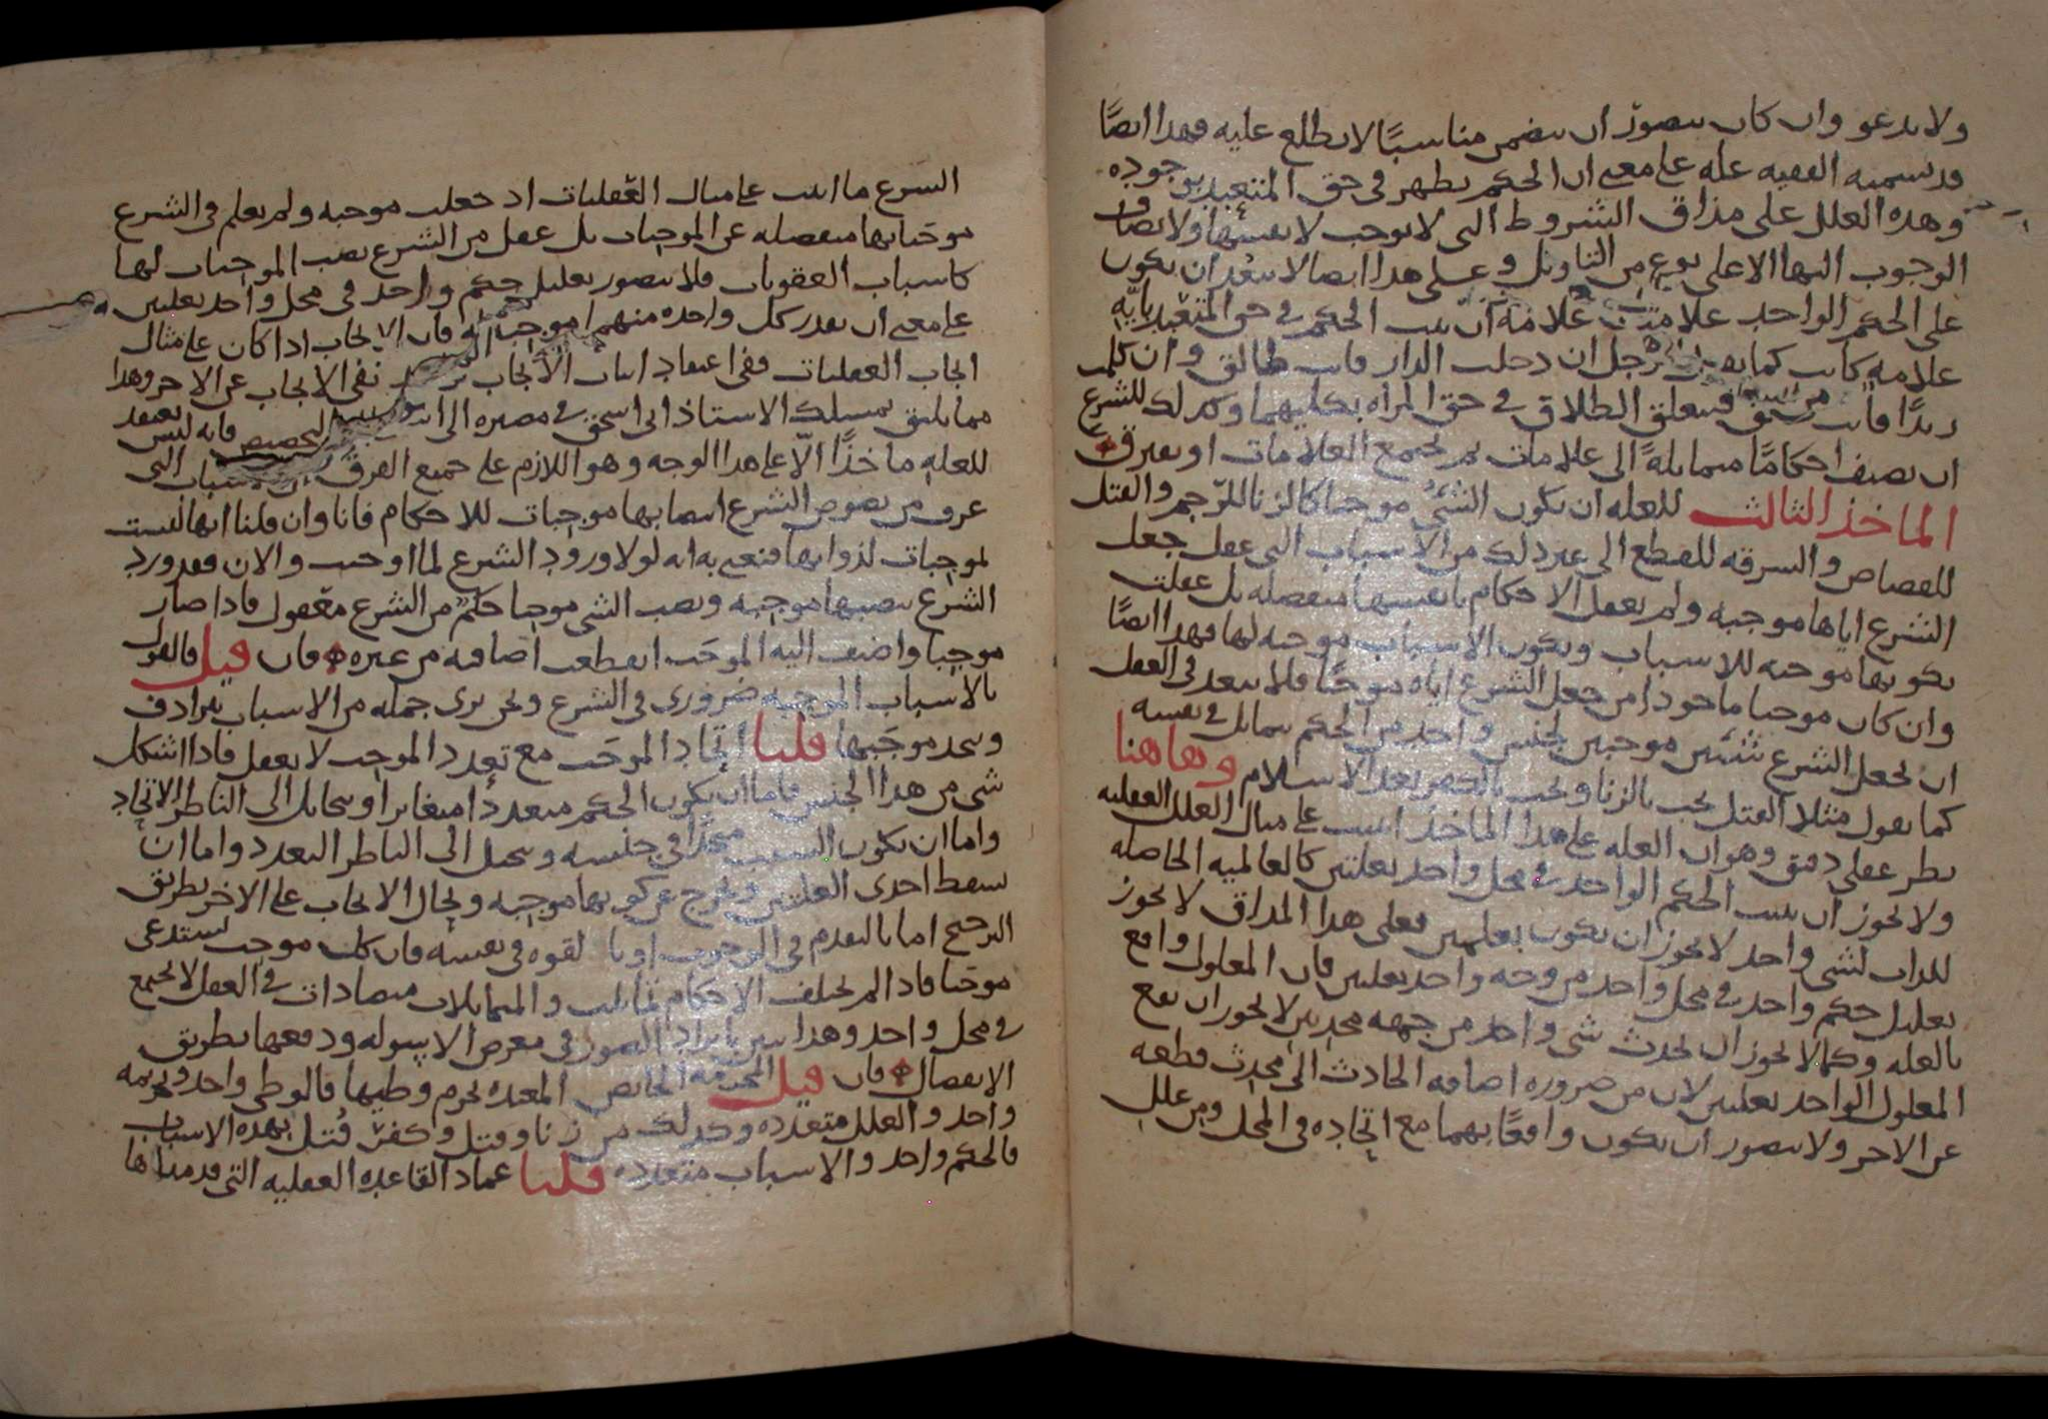 ولا يدعو وان كان يتصوّر ان يتضمن مناسبًا لا يطلع عليه فهذا ايضًا
قد يسميه الفقيه علة على معنى ان الحكم يظهر في حق المتعبد بوجوده
وهذه العلل على مذاق الشروط التي لا توجب لا بعينها ولا يضاف
الوجوب اليها الا على نوع من التاويل وعلى هذا ايضا لا يبعد ان يكون
على الحكم الواحد علامتان علامة ان يثبت الحكم في حق المتعبد بايّه
علامة كانت كما يقول رجل ان دخلت الدار فانت طالق وان كلمت
زيدًا فانت طالق فيتعلق الطلاق في حق المراه بكليهما وكذلك للشرع
ان يضيف احكامًا متماثلةً الى علامات ثم تجتمع العلامات او تفترق
الماخذ الثالث للعلة ان يكون الشيء موجبا كالزنا للرّجم والقتل
للقصاص والسرقة للقطع الى غير ذلك من الاسباب التي عقل جعل
الشرع اياها موجبة ولم يعقل الاحكام بانفسها منفصلة بل عقلت
بكونها موجبة للاسباب وبكون الاسباب موجبة لها فهذا ايضًا
وان كان موجبا ماخوذا من جعل الشرع اياه موجبًا فلا يبعد في العقل
ان يجعل الشرع شيئين موجبين لجنس واحد من الحكم يماثل في نفسه
كما نقول مثلا القتل يجب بالزنا ويجب بالكفر بعد الاسلام وهاهنا
نظر عقلي دقيق وهو ان العلة على هذا الماخذ اثبتت على مثال العلل العقلية
ولا يجوز ان يثبت الحكم الواحد في محل واحد بعلتين كالعالمية الحاصلة
للذات لشي واحد لا يجوز ان يكون بعلمين فعلى هذا المذاق لا يجوز
تعليل حكم واحد في محل واحد من وجه واحد بعلتين فان المعلول واقع
بالعلة وكما لا يجوز ان يحدث شي واحد من جهة محدثين لا يجوز ان يقع
المعلول الواحد بعلتين لان من ضرورة اضافة الحادث الى محدث قطعه
عن الاخر ولا يتصور ان يكون واقعًا بهما مع اتحاده في المحل ومن علل
الشرع ما اثبت على مثال العقليات اذ جعلت موجبة ولم يعلم في الشرع
موجَباتها منفصلة عن الموجبات بل عقل من الشرع نصب الموجبات لها
كاسباب العقوبات فلا يتصور تعليل حكم واحد في محل واحد بعلتين
على معنى ان يقدر كل واحدة منهما موجبة فان الايجاب اذا كان على مثال
ايجاب العقليات ففي اعتقاد اثبات الايجاب نفي الايجاب عن الاخر وهذا
مما يليق بمسلك الاستاذ ابي اسحق في مصيره الى التخصيص فانه ليس يعتقد
للعلة ماخذًا الّا على هذا الوجه وهو اللازم على جميع الفرق الاسباب التي
عرف من نصوص الشرع انتصابها موجبات للاحكام فانا وان قلنا انها ليست
لموجبات لذواتها فنعني به انه لولا ورود الشرع لما اوجبت والان فقد ورد
الشرع بنصبها موجبة ونصب الشي موجبا حكم من الشرع معقول فاذا صار
موجبا واضيف اليه الموجَب انقطعت اضافته من غيره فان قيل فالقول
بالاسباب الموجبة ضروري في الشرع ونحن نرى جملة من الاسباب تترادف
ويتحد موجَبها قلنا اتحاد الموجَب مع تعدد الموجب لا يعقل فاذا اشكل
شي من هذا الجنس فاما ان يكون الحكم متعددا متغايرا ويتخايل الى الناظر الاتحاد
واما ان يكون السبب متحدًا في جنسه ويتخيل الى الناظر التعدد واما ان
تسقط احدى العلتين وتخرج عن كونها موجبة ويحال الايجاب على الاخر بطريق
الترجيح اما بالتقدم في الوجوب او بالقوة في نفسه فان كل موجب يستدعي
موجَبا فاذا لم تختلف الاحكام تماثلت والمتماثلات متضادات في العقل لا تجتمع
في محل واحد وهذا يبين بايراد الصور في معرض الاسولة ودفعها بطريق
الانفصال فان قيل المحرمة الحائض المعتدة يحرم وطيها فالوطي واحد وتحريمه
واحد والعلل متعددة وكذلك من زنا وقتل وكفر قُتل بهذه الاسباب
فالحكم واحد والاسباب متعددة قلنا عماد القاعدة العقلية التي قدمناها